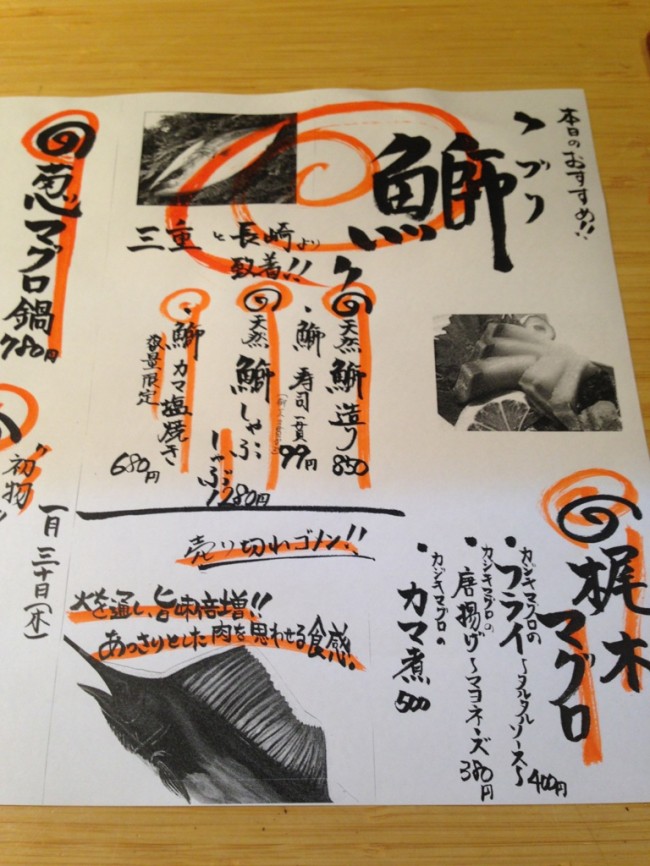 本日のおすすめ!!
ブリ
鰤
三重と長崎より
到着!!
天然鰤造り 850
・鰤 寿司一貫 99円
天然鰤しゃぶしゃぶ 1280円
・鰤カマ塩焼き 680円
数量限定
売り切れゴメン!!
梶木マグロ
・カジキマグロのフライ〜タルタルソース〜 400円
・カジキマグロの唐揚げ〜マヨネーズ 380円
・カジキマグロのカマ煮 500
火を通し、旨味倍増!!
あっさりとした肉を思わせる食感!
葱マグロ鍋
780円
"初物"
一月三十日(木)